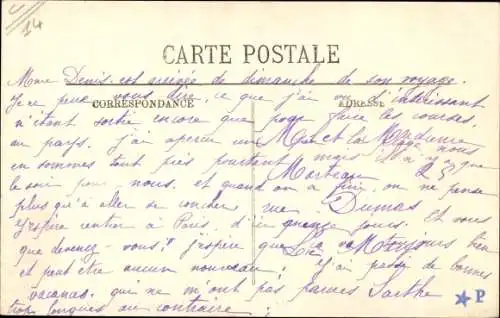 14
CARTE POSTALE
Mme Denis est arrivée de dimanche de son voyage.
Je ne peux vous dire, ce que j'ai vu d'intéressant
CORRESPONDANCE
ADRESSE
n'étant sortie encore que pour faire les courses.
au pays. j'ai aperçu un
Mme et la
nous
en sommes tout près pourtant mais il n'y a que
le soir pour nous. et quand on a fini, on ne pense
plus qu'à aller se coucher
rue Dumas
Et vous
J'espère rentrer à Paris, d'ici quinze jours.
que devenez-vous? J'espère que toujours bien
Le Mans
et peut être aucun nouveau;
J'ai passé de bonnes
vacances, qui ne m'ont pas parues
Sarthe
trop longues au contraire;
P